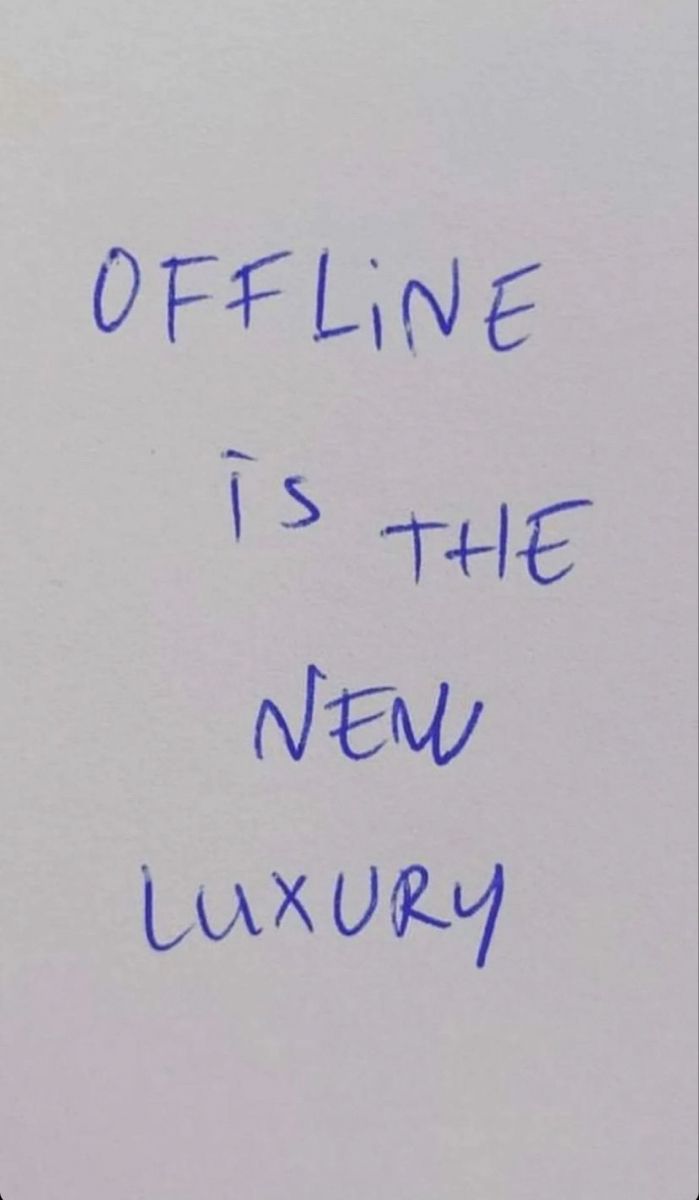 OFFLiNE
is THE
NEW
LUXURY